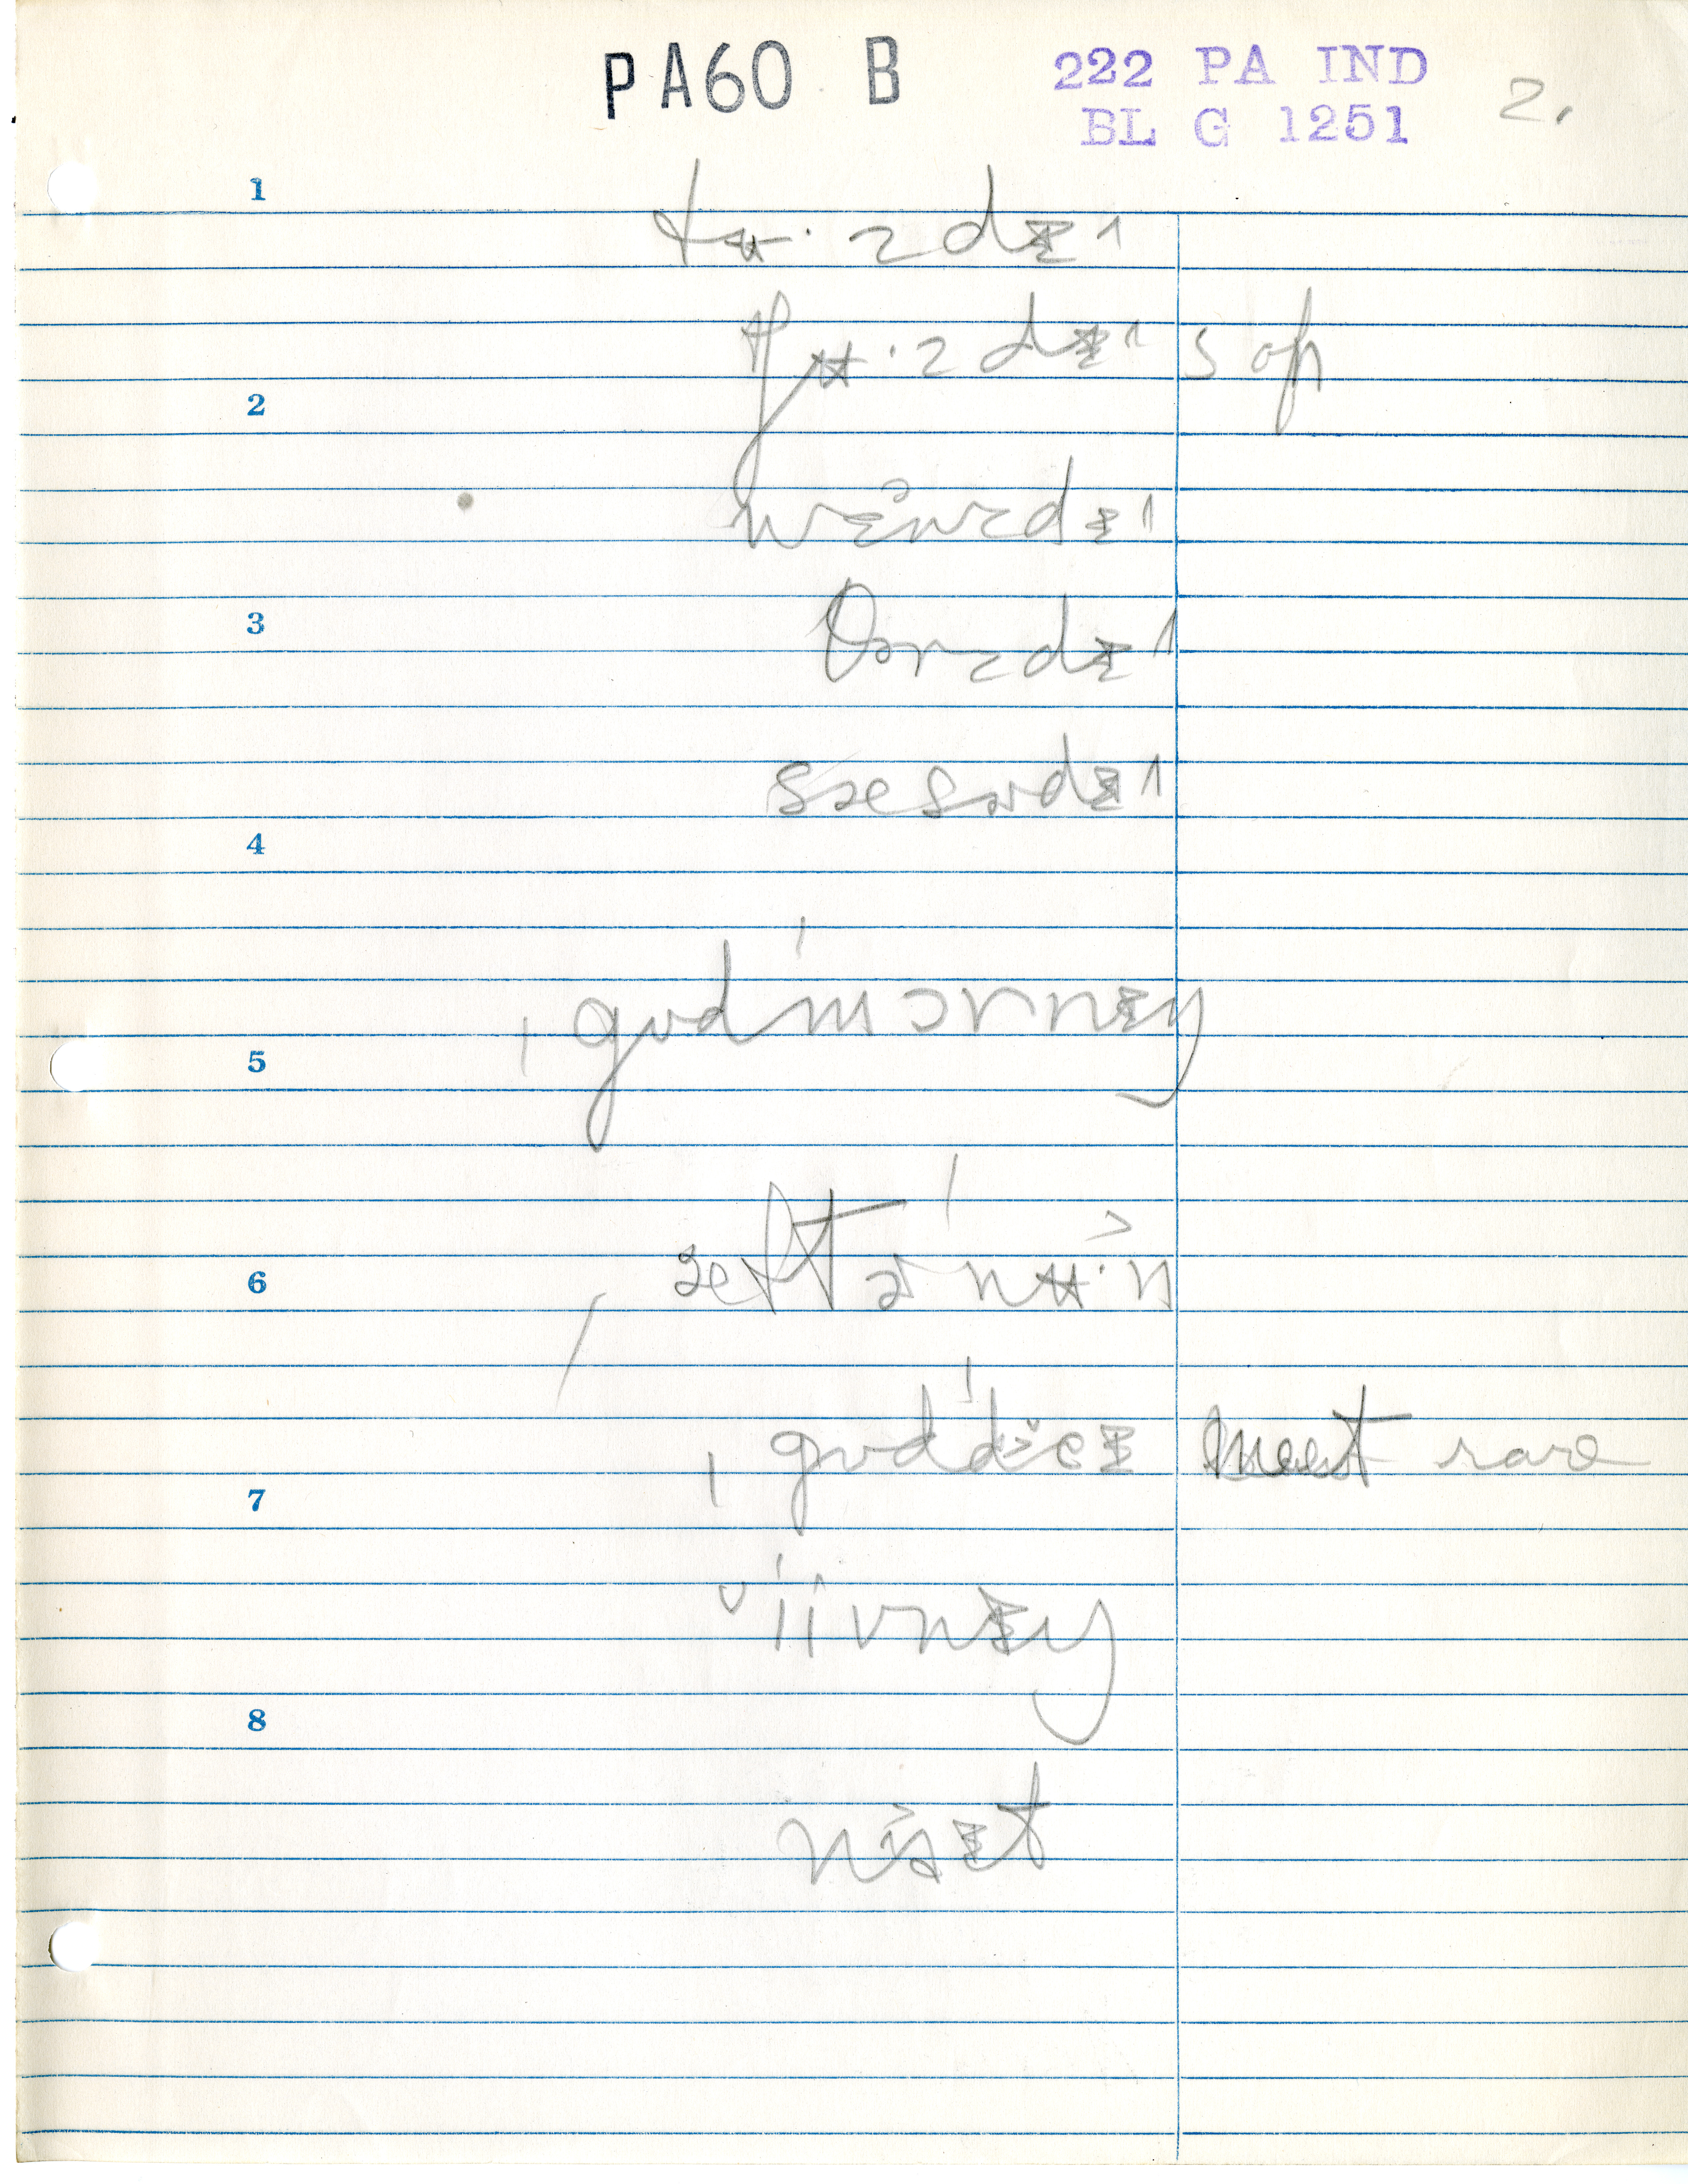 PA60 B
222 PA IND
BL G 1251
2.
1
tʉ·zdɪ^
tʃʉ·zdɪ^ s of
2
wɛ̃nzdɪ^
3
θɔrzdɪ^
sæsɚdɪ^
4
ˌgʊd'mɔrnɪŋ
5
ˌæftɚ'nʉ·n
6
ˌgʊd'dɛɪ meet rare
7
'iivnɪŋ
8
naɪt